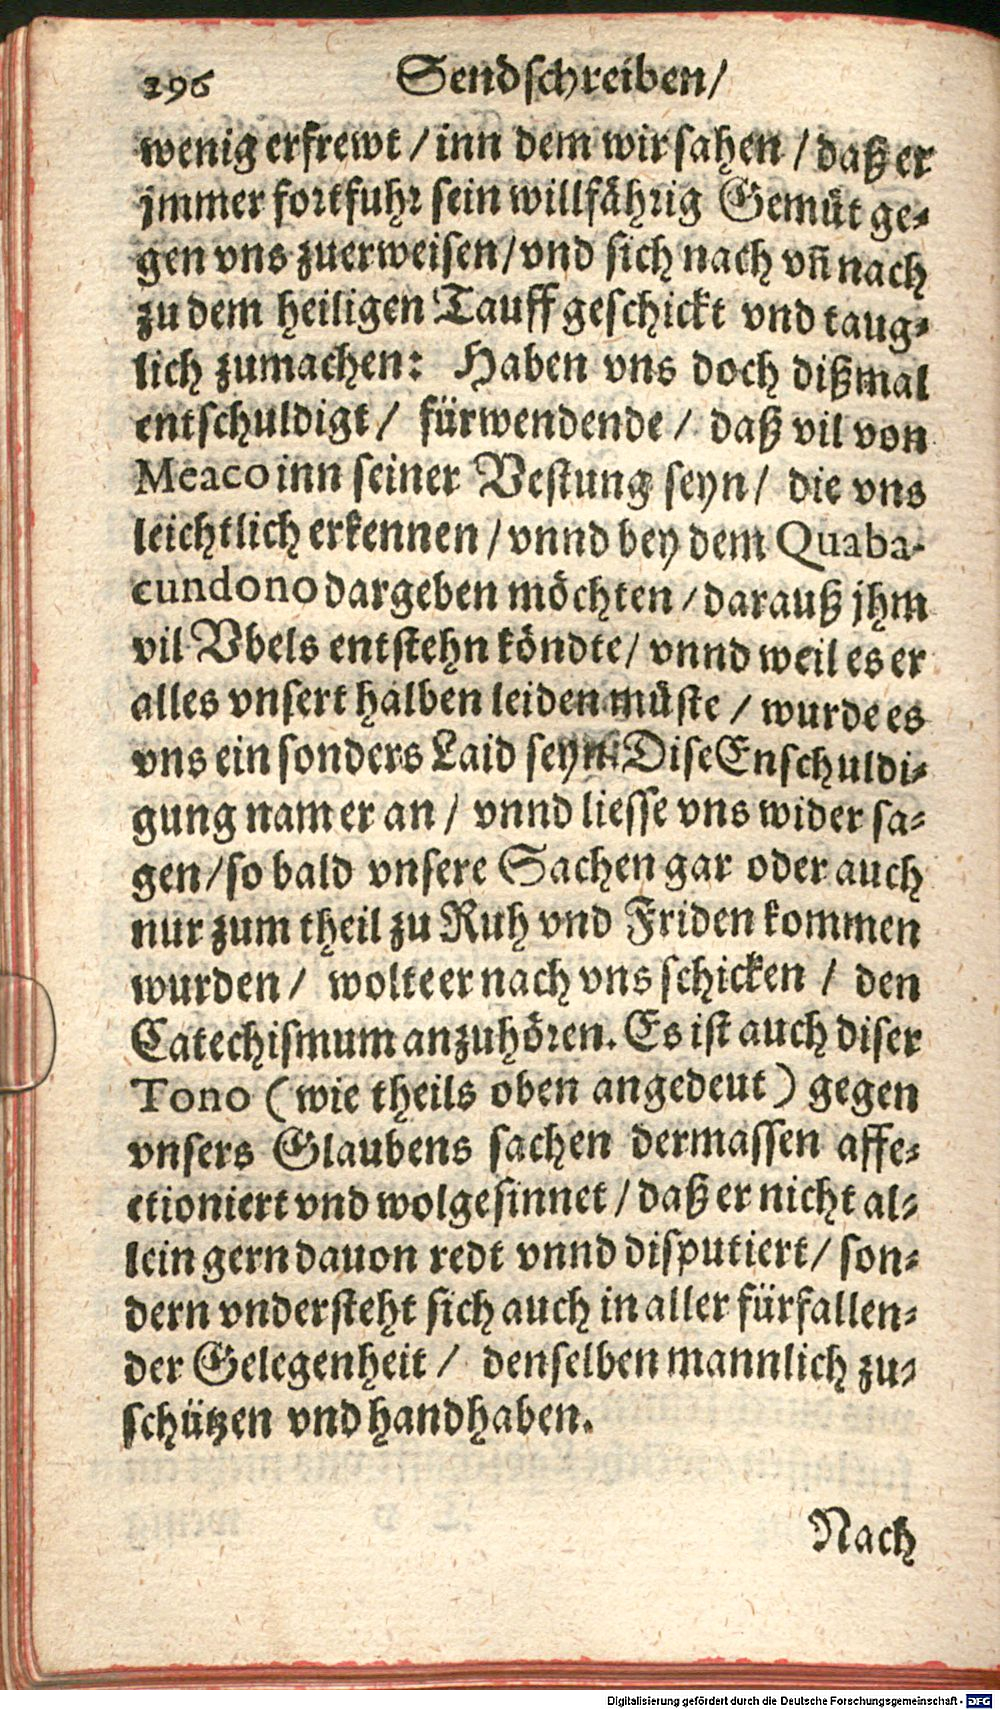 296 Sendschreiben/
wenig erfrewt / inn dem wir sahen / daß er
jmmer fortfuhr sein willfährig Gemüt ge-
gen vns zuerweisen/vnd sich nach vñ nach
zu dem heiligen Tauff geschickt vnd taug-
lich zumachen: Haben vns doch dißmal
entschuldigt / fürwendende / daß vil von
Meaco inn seiner Vestung seyn / die vns
leichtlich erkennen / vnnd bey dem Quaba-
cundono dargeben möchten / darauß jhm
vil Vbels entstehn köndte / vnnd weil es er
alles vnsert halben leiden müste / wurde es
vns ein sonders Laid seyn. Dise Enschuldi-
gung nam er an / vnnd liesse vns wider sa-
gen / so bald vnsere Sachen gar oder auch
nur zum theil zu Ruh vnd Friden kommen
wurden / wolte er nach vns schicken / den
Catechismum anzuhören. Es ist auch diser
Tono (wie theils oben angedeut) gegen
vnsers Glaubens sachen dermassen affe-
ctioniert vnd wolgesinnet / daß er nicht al-
lein gern dauon redt vnnd disputiert / son-
dern vndersteht sich auch in aller fürfallen-
der Gelegenheit / denselben mannlich zu-
schützen vnd handhaben.
Nach
Digitalisierung gefördert durch die Deutsche Forschungsgemeinschaft - DFG